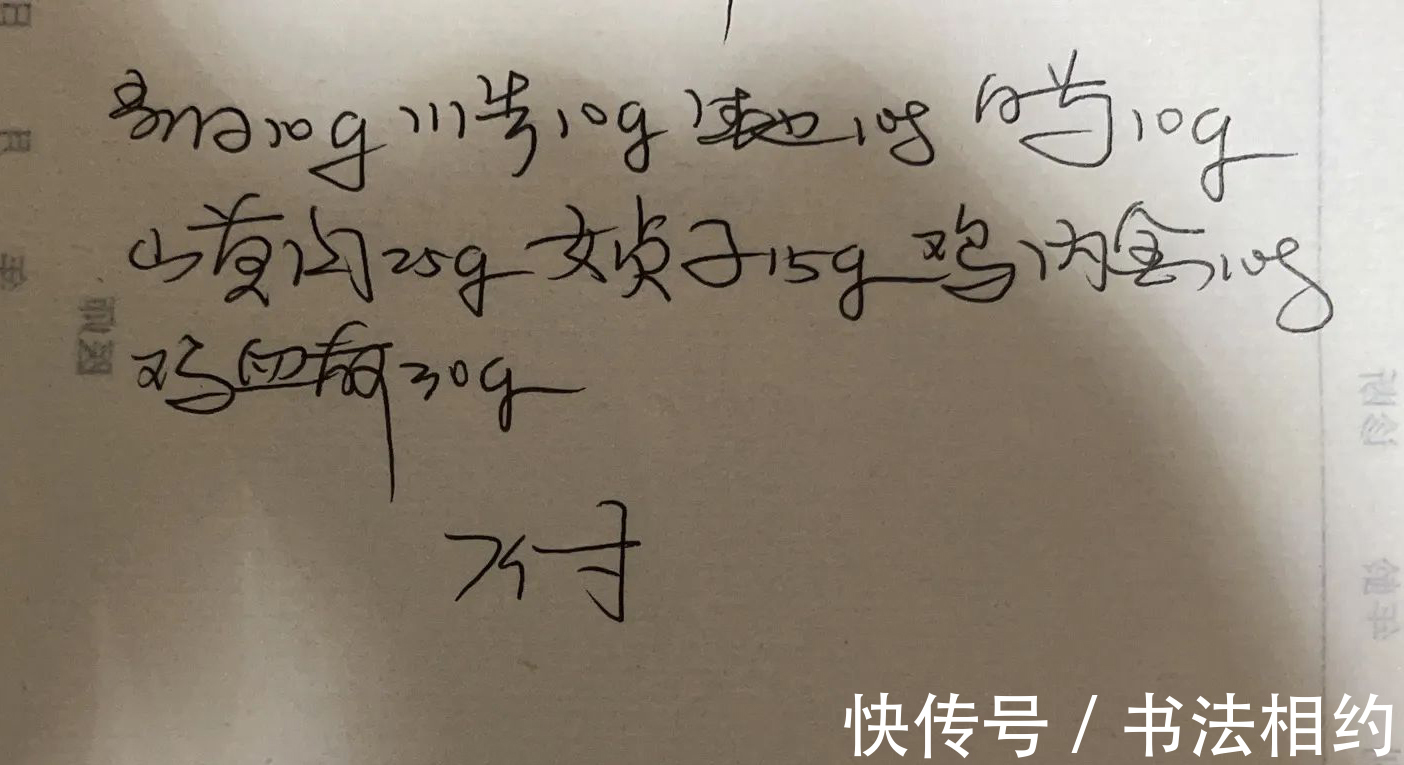 10g 川芎10g 地10g 白芍10g
山萸肉25g 女贞子15g 鸡内金10g
鸡血藤30g
7付
快传号 / 书法相约